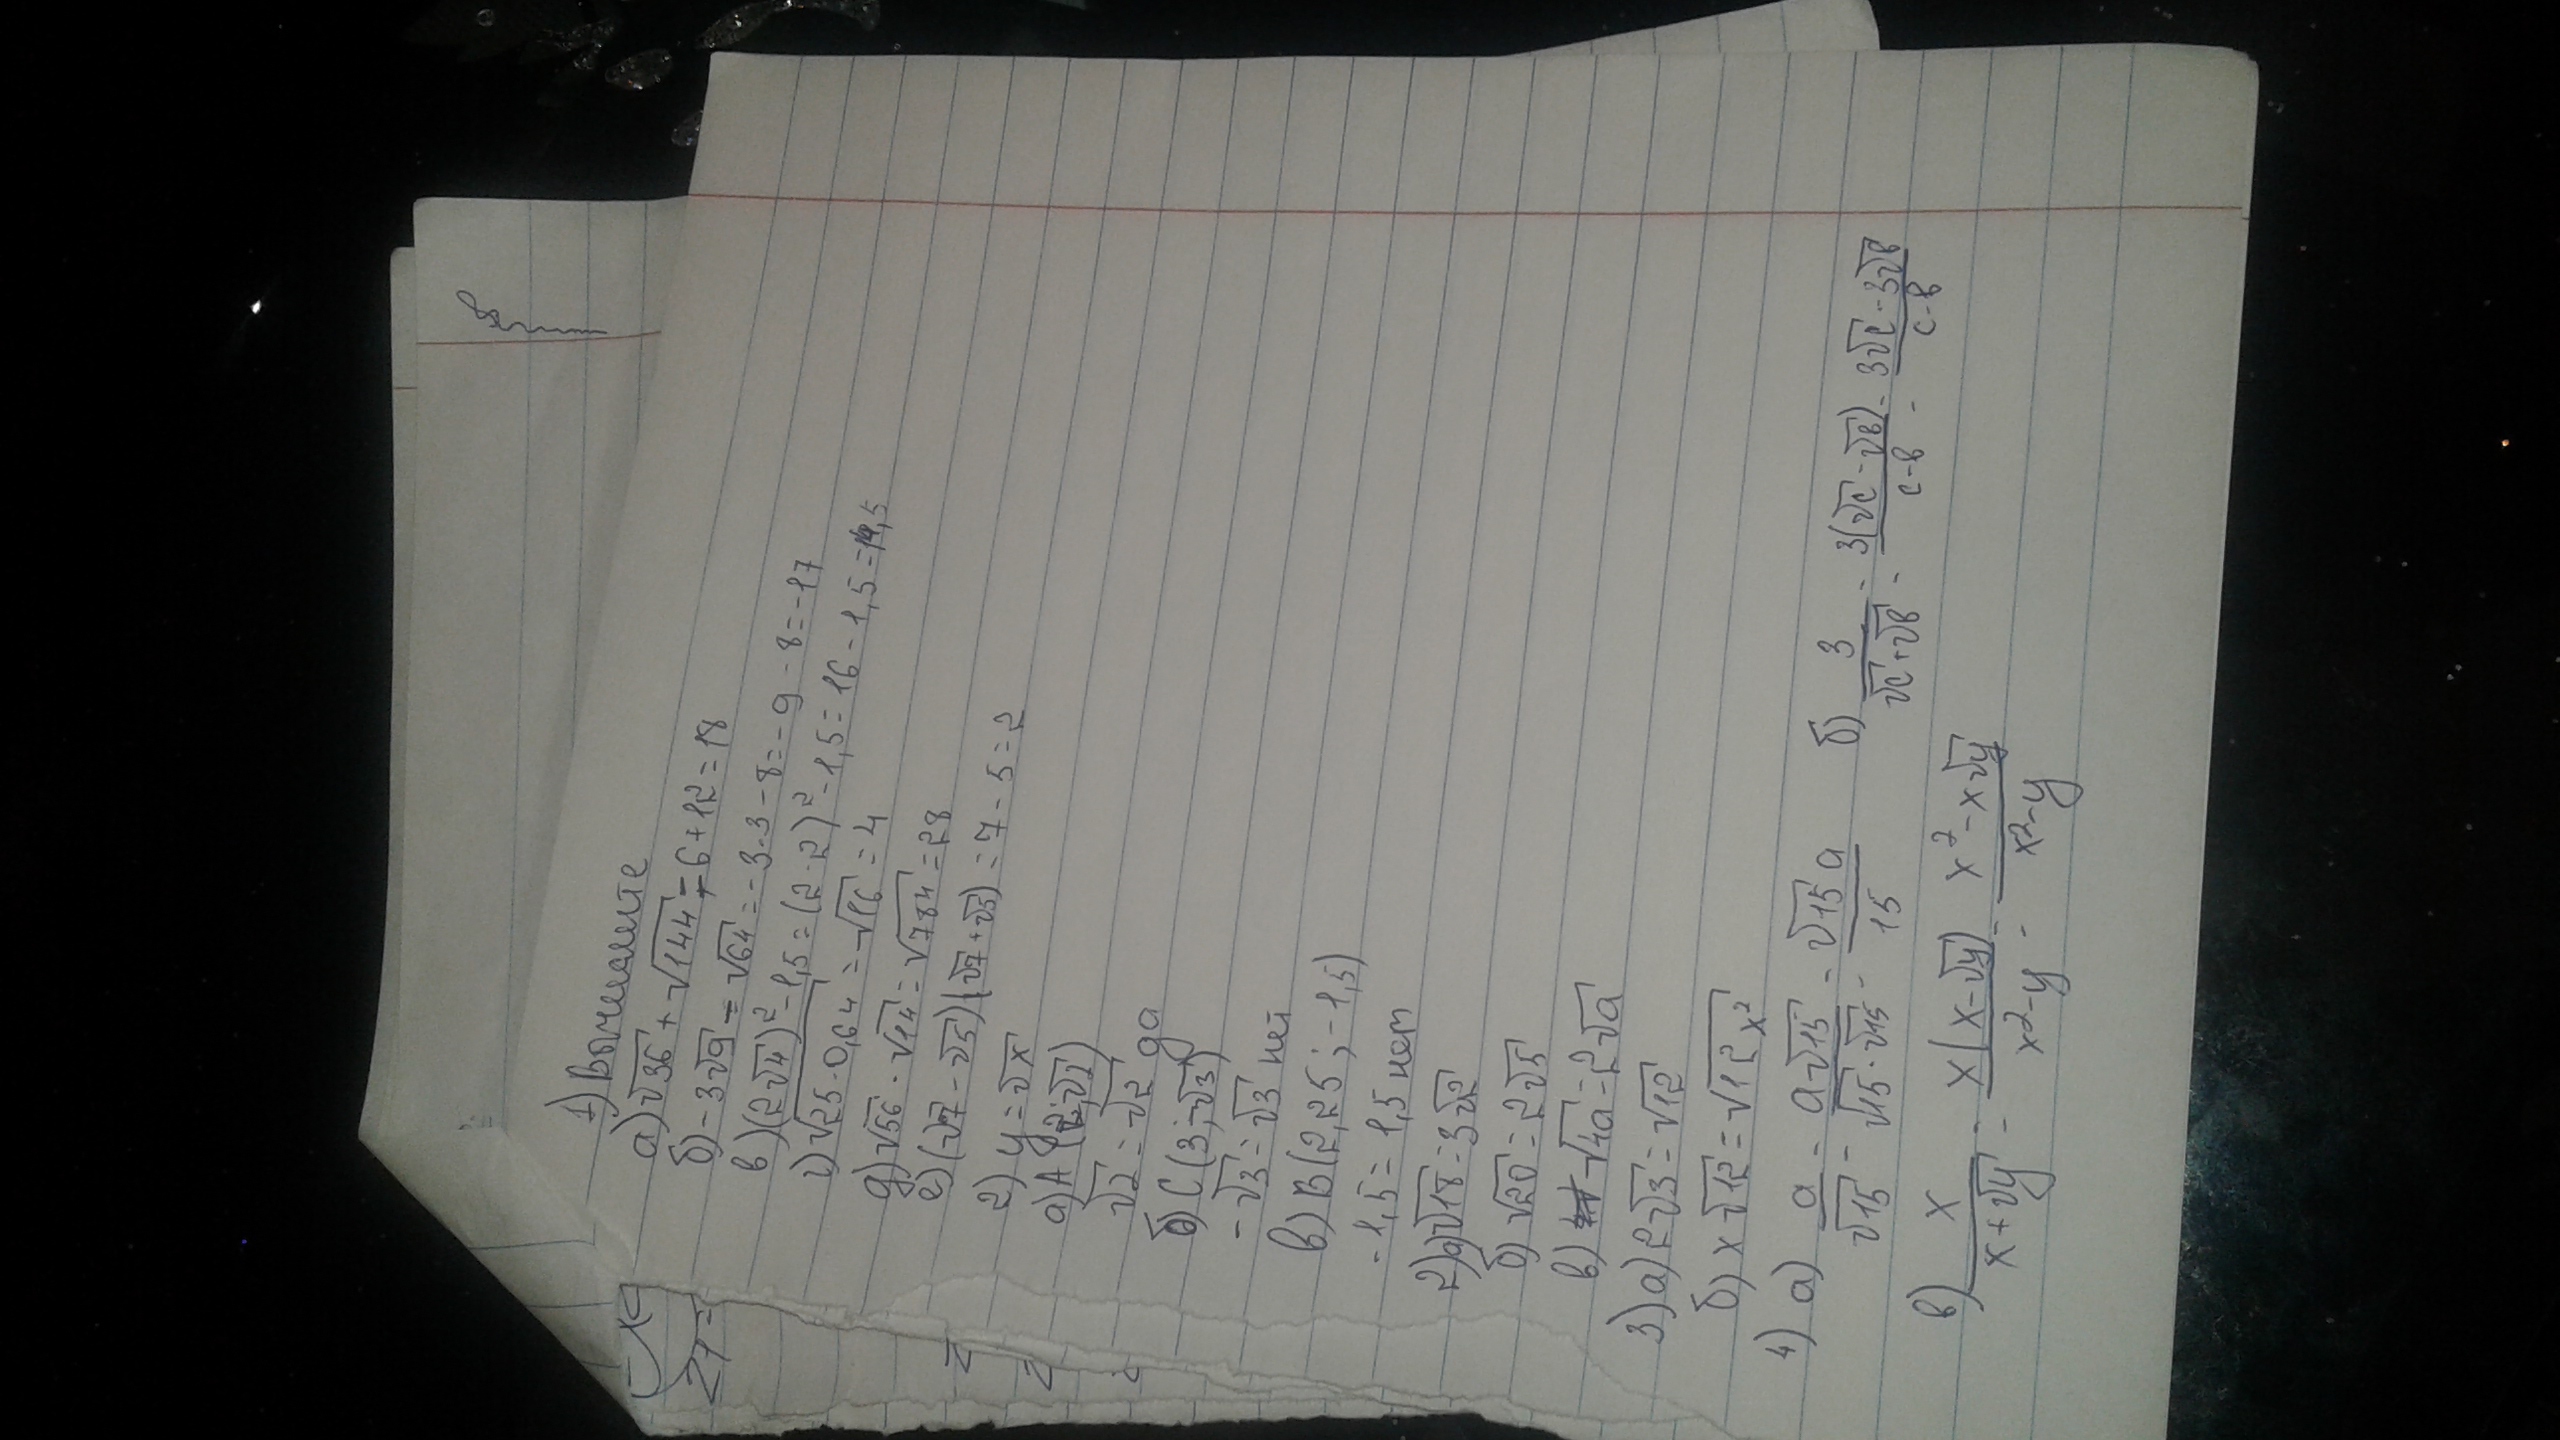 1) Вычислите
а) √36 + √144 = 6 + 12 = 18
б) -3√9 - √64 = -3·3 - 8 = -9 - 8 = -17
в) (2√4)² - 1,5 = (2·2)² - 1,5 = 16 - 1,5 = 14,5
г) √25·0,64 = √16 = 4
д) √56 · √14 = √784 = 28
е) (√7 - √5)(√7 + √5) = 7 - 5 = 2
2) y = √x
а) A (2; √2)
√2 = √2 да
б) C (3; -√3)
-√3 = √3 нет
в) B (2,25; -1,5)
-1,5 = 1,5 нет
2) а) √18 = 3√2
б) √20 = 2√5
в) √4a = 2√a
3) а) 2√3 = √12
б) x √12 = √12x²
4) а) a/√15 = a√15/√15·√15 = √15a/15 б) 3/√c+√b = 3(√c-√b)/c-b = 3√c-3√b/c-b
в) x/x+√y = x(x-√y)/x²-y = x²-x√y/x²-y
27